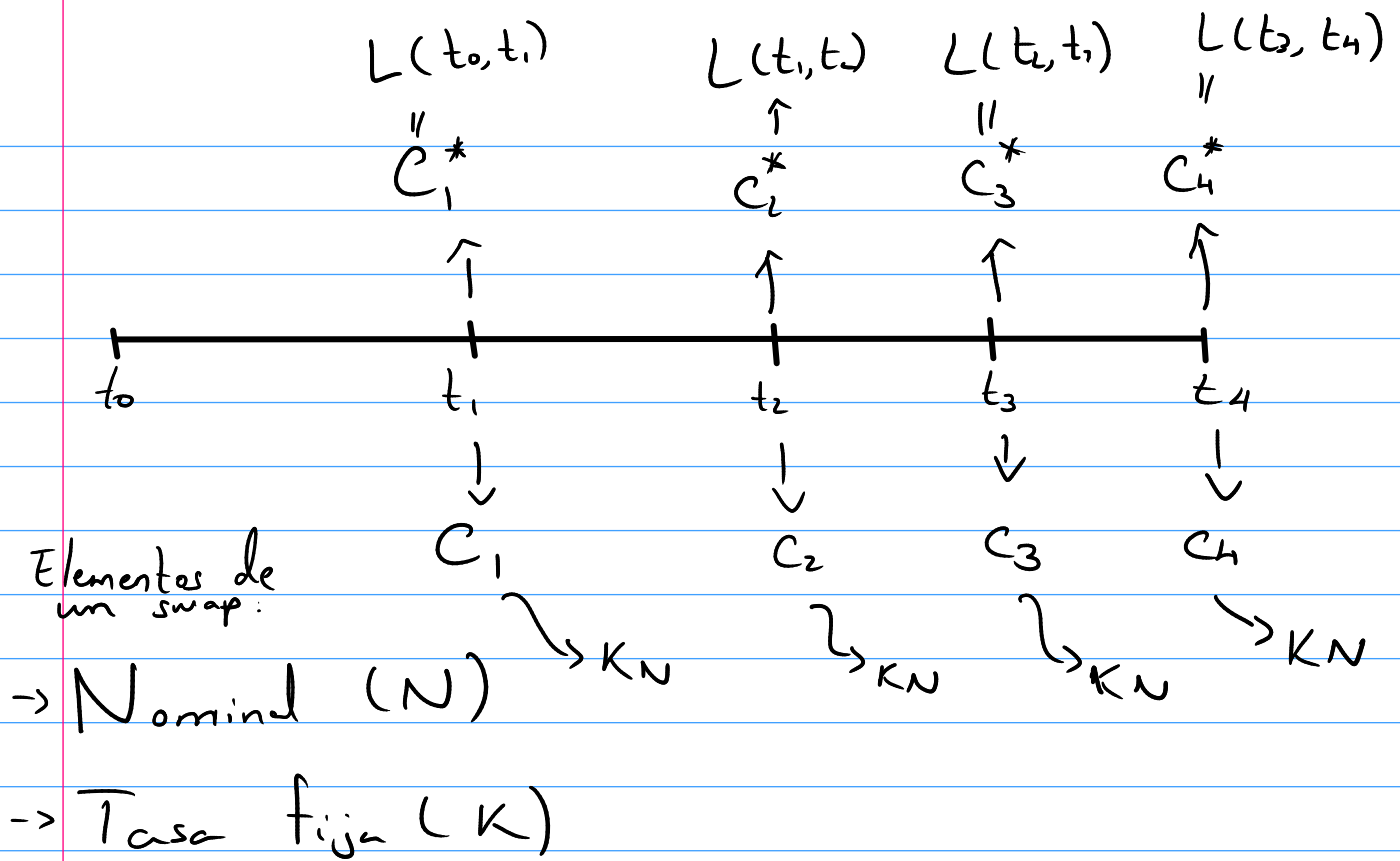 L(t₀, t₁) L(t₁, t₂) L(t₂, t₃) L(t₃, t₄)
= ↑ = =
C₁* C₂* C₃* C₄*
↑ ↑ ↑ ↑
t₀ t₁ t₂ t₃ t₄
↓ ↓ ↓ ↓
C₁ C₂ C₃ C₄
Elementos de
un swap:
↘ KN ↘ KN ↘ KN ↘ KN
-> Nominal (N)
-> Tasa fija (K)